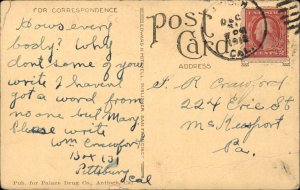 FOR CORRESPONDENCE
Hows every
body? Why
dont some of your
write I havent
got a word from
no one but Mary
Please write
Wm Crawford
Box 151
Pittsburg
Cal
Pub. for Palace Drug Co., Antioch
EDWARD H. MITCHELL, PUBLISHER, SAN FRANCISCO
Post
Card
ADDRESS
DEC
CAL.
J. R. Crawford
224 Erie St
McKeesport
Pa.